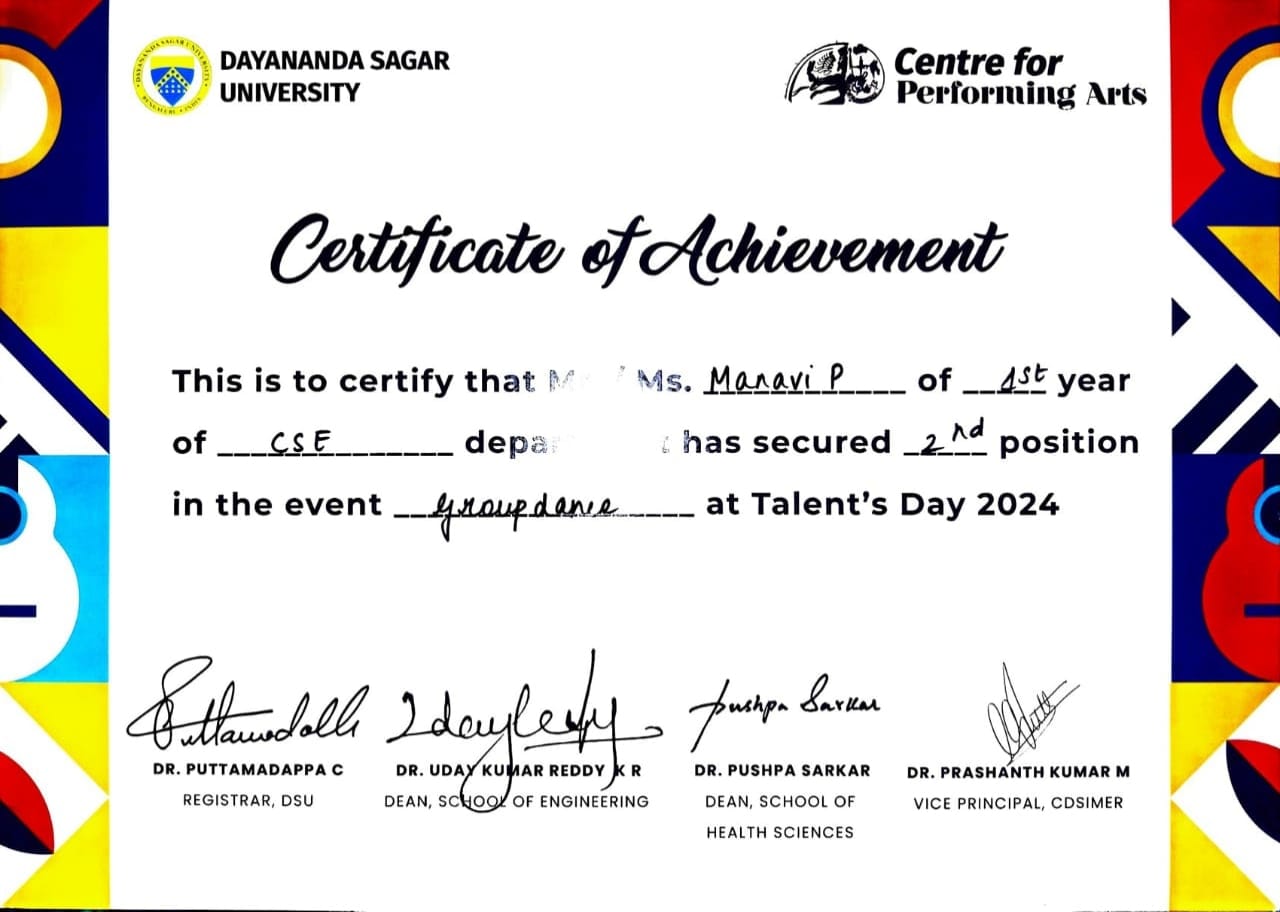 DAYANANDA SAGAR
UNIVERSITY
Centre for
Performing Arts
Certificate of Achievement
This is to certify that Ms. Manavi P of 1st year
of CSE has secured 2nd position
in the event groupdance at Talent's Day 2024
Pushpa Sarkar
DR. PUTTAMADAPPA C
REGISTRAR, DSU
DR. UDAY KUMAR REDDY K R
DEAN, SCHOOL OF ENGINEERING
DR. PUSHPA SARKAR
DEAN, SCHOOL OF
HEALTH SCIENCES
DR. PRASHANTH KUMAR M
VICE PRINCIPAL, CDSIMER